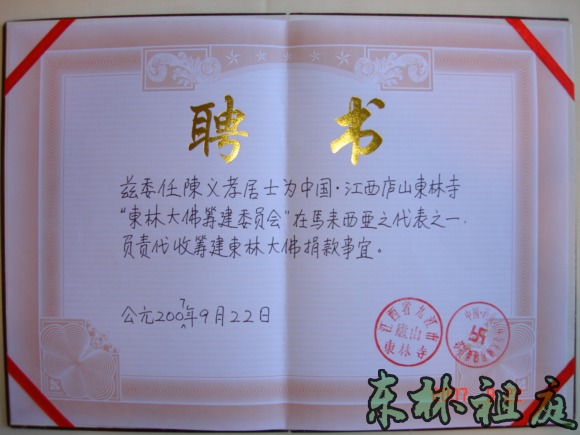 聘 书
兹委任陳义孝居士为中国·江西庐山東林寺
“東林大佛筹建委员会”在馬来西亚之代表之一,
负责代收筹建東林大佛捐款事宜。
公元2007年9月22日
江西省九江市
廬山
東林寺
东林祖庭